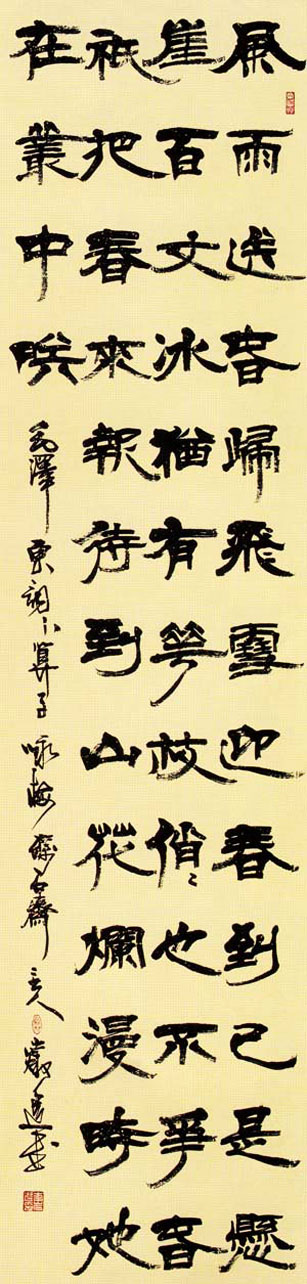 風雨送春歸飛雪迎春到已是懸
崖百丈冰猶有華枝俏〻也不爭春
祇把春來報待到山花爛漫時她
在叢中咲
毛澤東詞卜算子咏梅 石齋主人